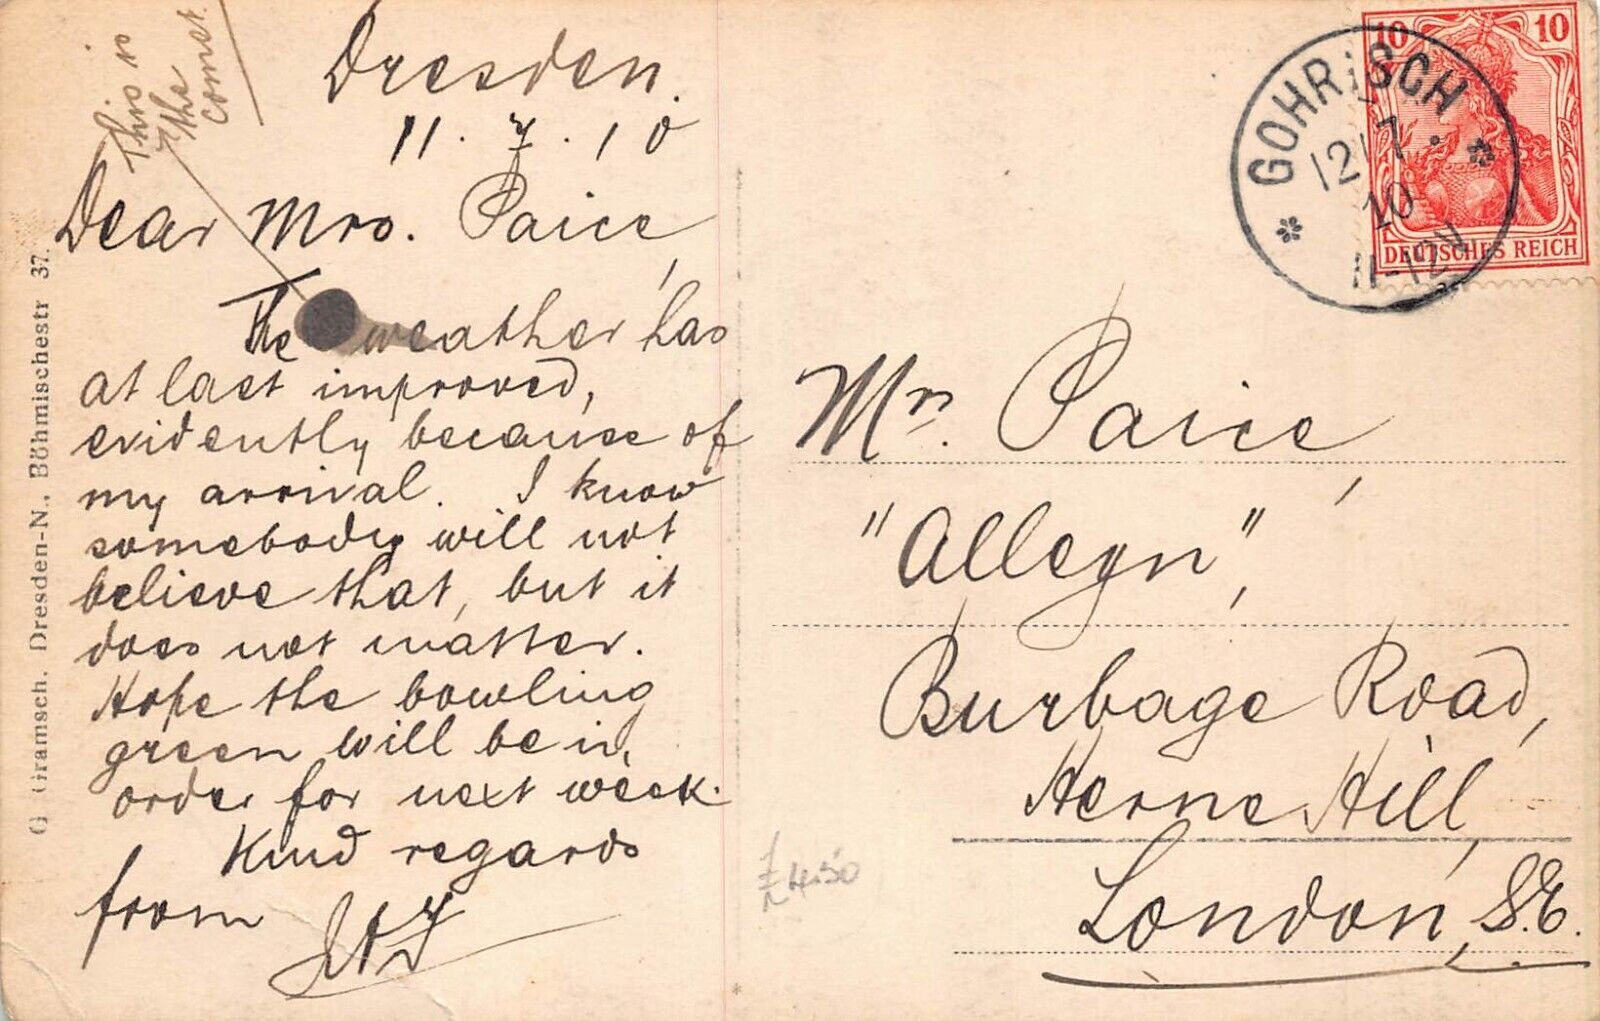 This is
the
comet.
Dresden.
11.7.10
Dear Mrs. Paice,
The weather has
at last improved,
evidently because of
my arrival. I know
somebody will not
believe that, but it
does not matter.
Hope the bowling
green will be in
order for next week.
Kind regards
from
G. Gramsch, Dresden-N., Böhmischestr 37.
10 10
DEUTSCHES REICH
GOHRISCH
12 7.
10
11-12V
Mrs. Paice,
"Allegn",
Burbage Road,
Herne Hill,
London, S.E.
£4.50